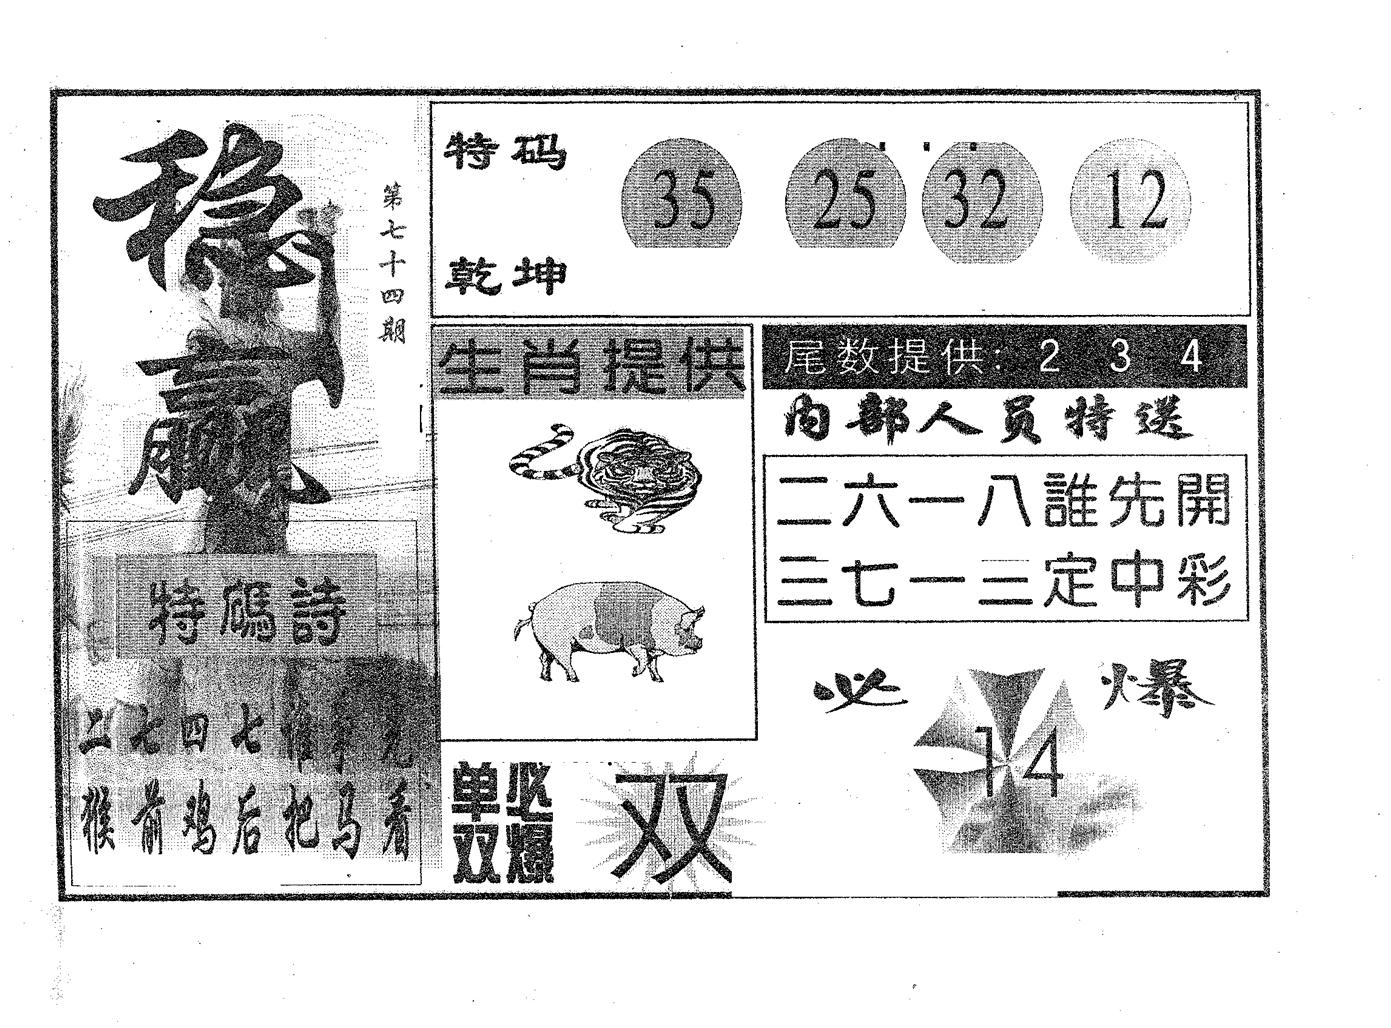 稳赢
第七十四期
特码
乾坤
35 25 32 12
生肖提供
尾数提供: 2 3 4
内部人员特送
二六一八誰先開
三七一三定中彩
特碼詩
二七四七谁
猴前鸡后把马看
必爆
14
单双必爆
双